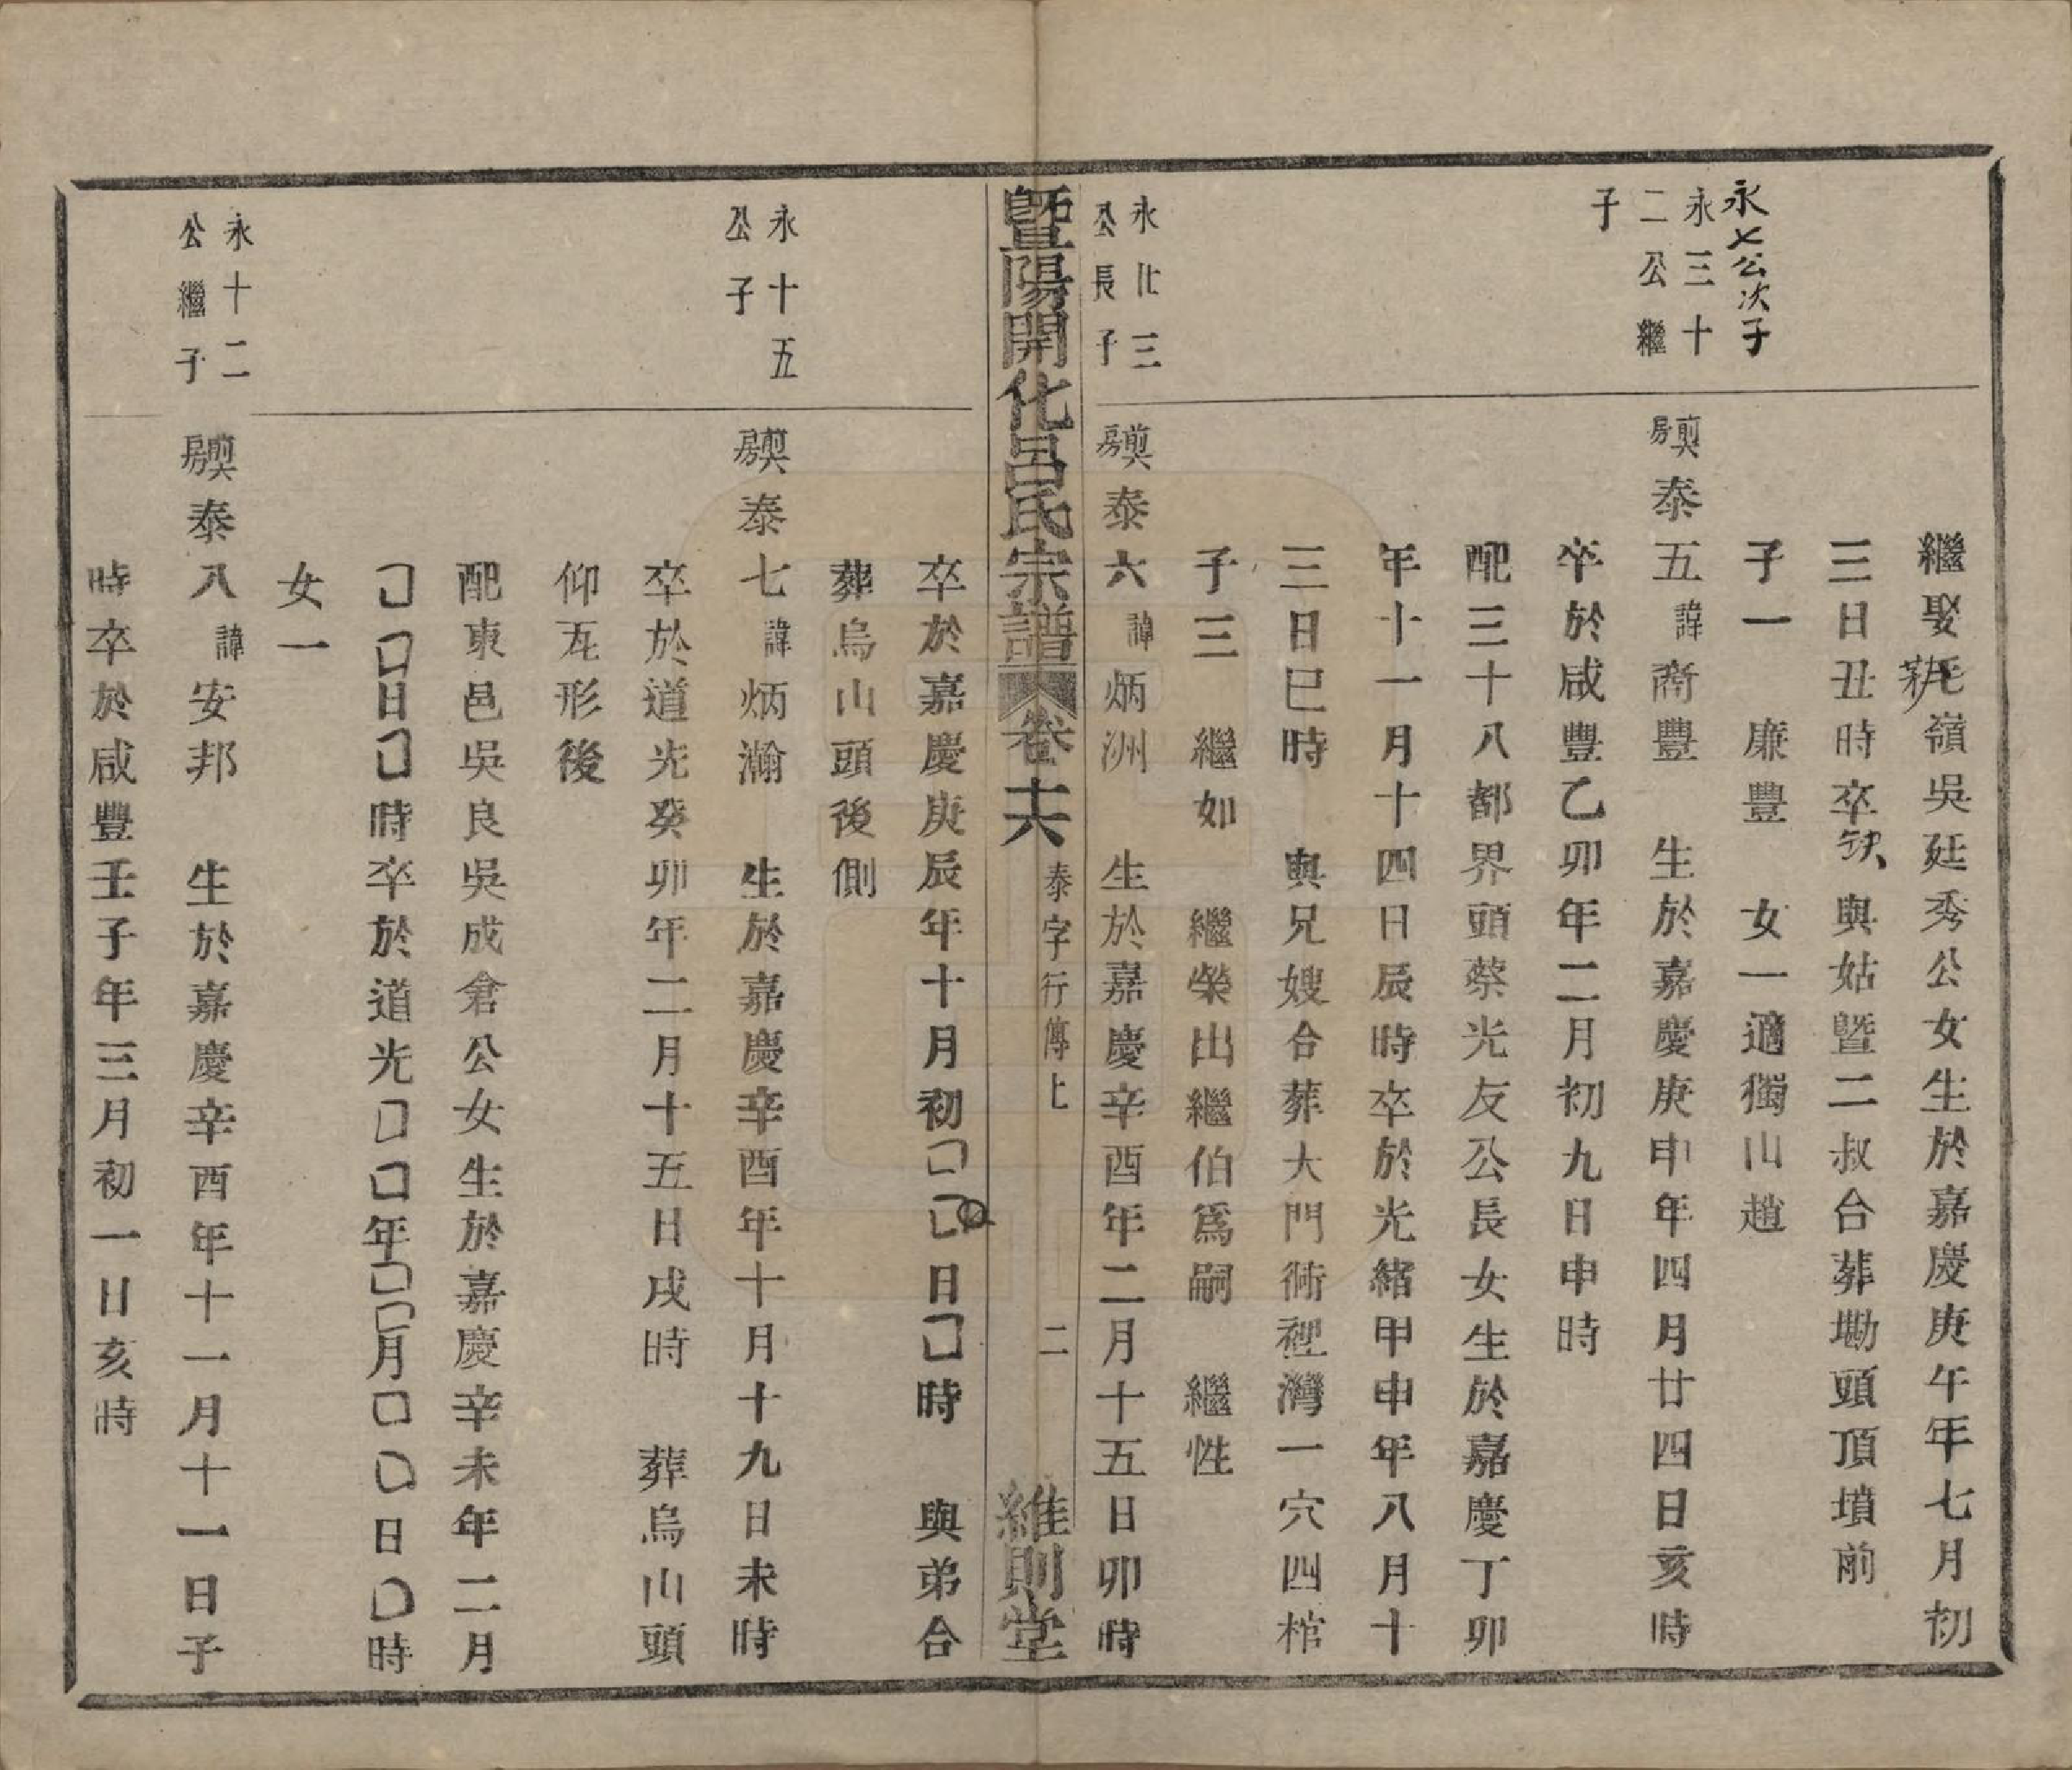 繼娶毛嶺吳廷秀公女生於嘉慶庚午年七月初
三日丑時卒缺與姑暨二叔合葬墈頭頂墳前
子一 廉豐 女一適獨山趙
永七公次子
永三十
二公繼
子
巽房泰五諱裔豐 生於嘉慶庚申年四月廿四日亥時
卒於咸豐乙卯年二月初九日申時
配三十八都界頭蔡光友公長女生於嘉慶丁卯
年十一月十四日辰時卒於光緒甲申年八月十
三日巳時 與兄嫂合葬大門衕裡灣一穴四棺
子三 繼如 繼榮出繼伯爲嗣 繼性
永化三
公長子
巽房泰六諱炳洲 生於嘉慶辛酉年二月十五日卯時
暨陽開化呂氏宗譜 卷十六 泰字行傳上 二 維則堂
卒於嘉慶庚辰年十月初□□日□時 與弟合
葬烏山頭後側
永十五
公子
巽房泰七諱炳瀚 生於嘉慶辛酉年十月十九日未時
卒於道光癸卯年二月十五日戌時 葬烏山頭
仰瓦形後
配東邑吳良吳成倉公女生於嘉慶辛未年二月
□□日□時卒於道光□□年□□月□□日□時
女一
永十二
公繼子
巽房泰八諱安邦 生於嘉慶辛酉年十一月十一日子
時卒於咸豐壬子年三月初一日亥時